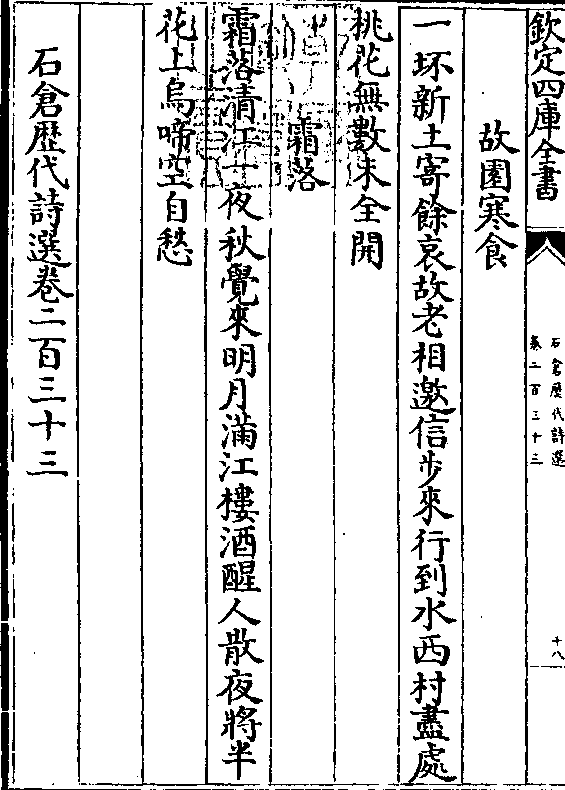 欽定四庫全書
石倉歴代詩選
卷二百三十三
十八
故園寒食
一坏新土寄餘哀故老相邀信步來行到水西村盡處
桃花無數未全開
霜落
霜落清江一夜秋覺來明月滿江樓酒醒人散夜將半
花上烏啼空自愁
石倉歴代詩選卷二百三十三